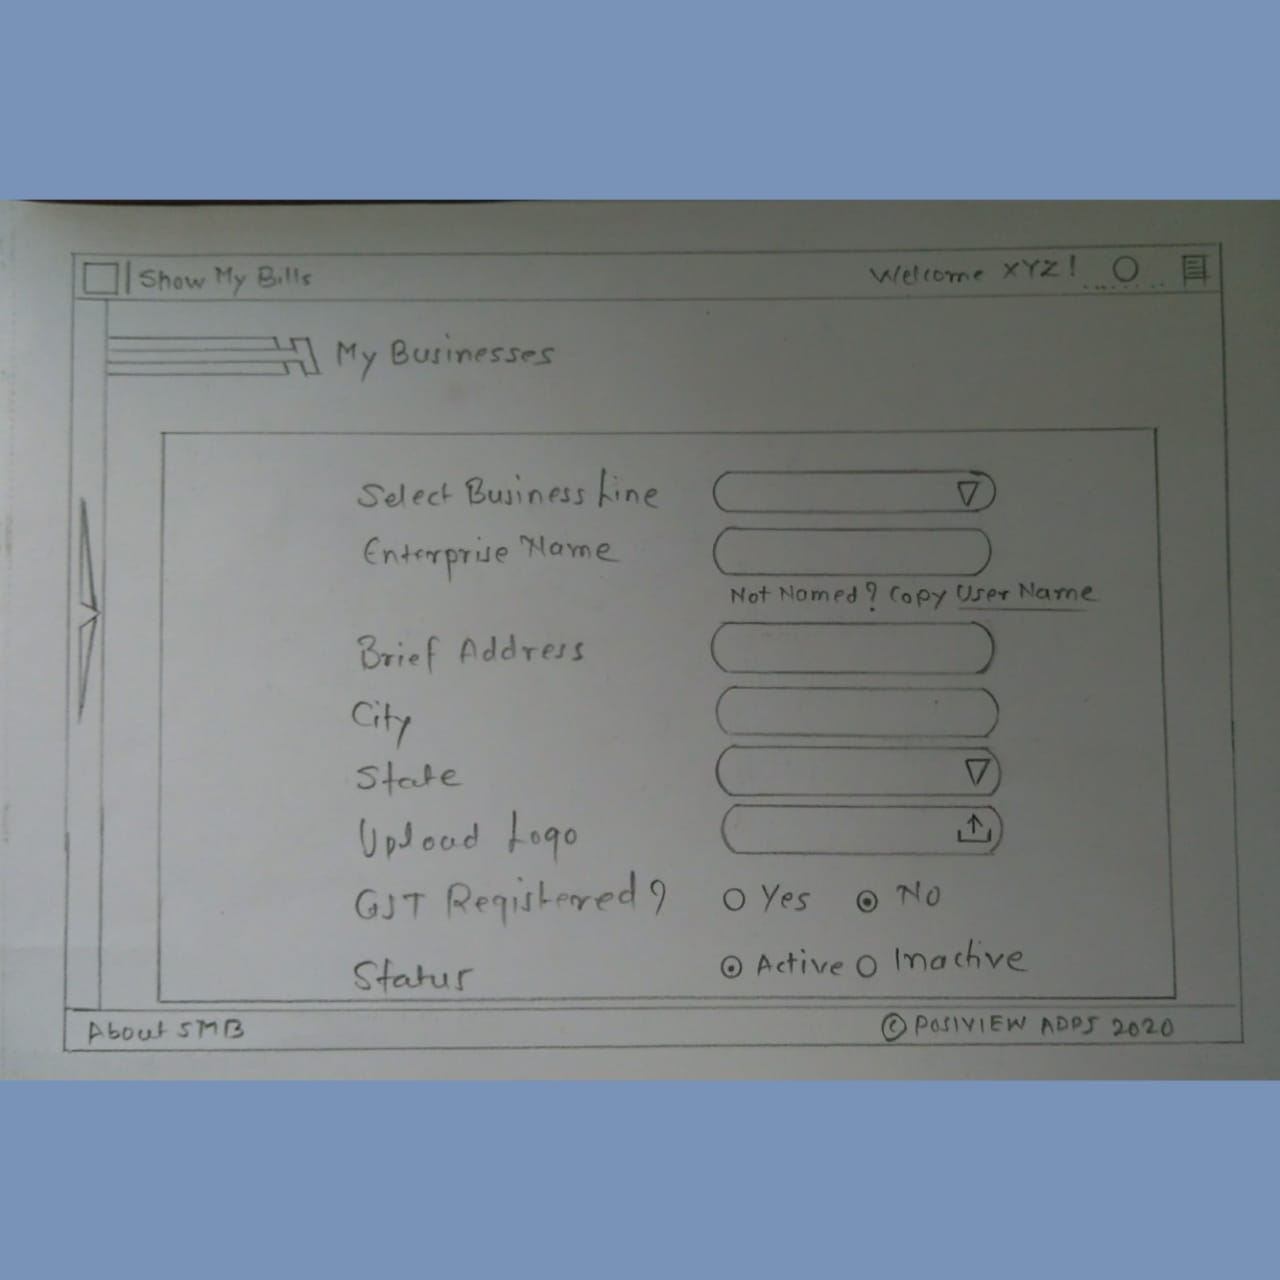 Show My Bills
Welcome XYZ!
My Businesses
Select Business Line
Enterprise Name
Not Named? Copy User Name
Brief Address
City
State
Upload Logo
GST Registered?
Yes No
Status
Active Inactive
About SMB
© POSIVIEW ADPS 2020